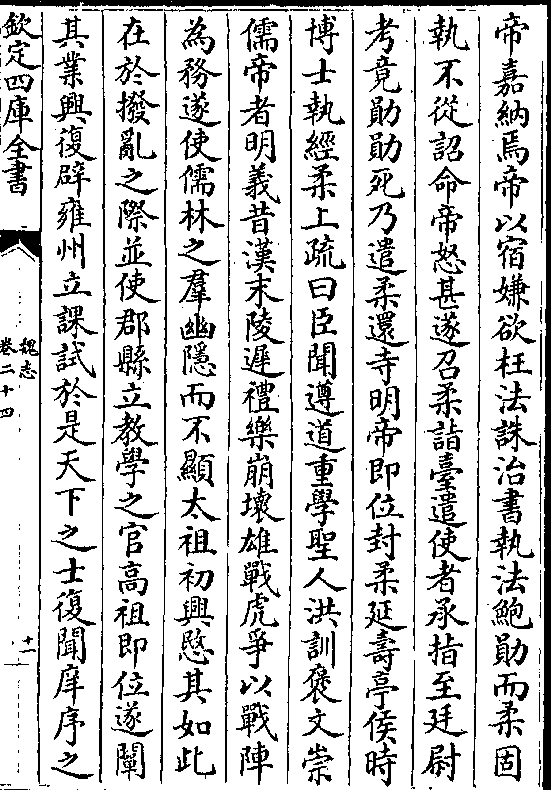 帝嘉納焉帝以宿嫌欲枉法誅治書執法鮑勛而柔固
執不從詔命帝怒甚遂召柔詣臺遣使者承指至廷尉
考竟勛勛死乃遣柔還寺明帝即位封柔延壽亭侯時
博士執經柔上疏曰臣聞遵道重學聖人洪訓褒文崇
儒帝者明義昔漢末陵遲禮樂崩壞雄戰虎爭以戰陣
為務遂使儒林之羣幽隱而不顯太祖初興愍其如此
在於撥亂之際並使郡縣立教學之官高祖即位遂闡
其業興復辟雍州立課試於是天下之士復聞庠序之
欽定四庫全書
魏志
卷二十四
十一